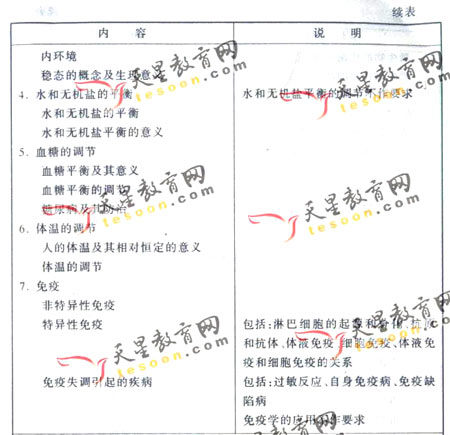 续表
内 容 说 明
内环境
稳态的概念及生理意义
4. 水和无机盐的平衡 水和无机盐平衡的调节不作要求
水和无机盐的平衡
水和无机盐平衡的意义
5. 血糖的调节
血糖平衡及其意义
血糖平衡的调节
糖尿病及其防治
6. 体温的调节
人的体温及其相对恒定的意义
体温的调节
7. 免疫
非特异性免疫
特异性免疫 包括:淋巴细胞的起源和分化、抗原
和抗体、体液免疫、细胞免疫、体液免
疫和细胞免疫的关系
免疫失调引起的疾病 包括:过敏反应、自身免疫病、免疫缺
陷病
免疫学的应用不作要求
天星教育网
tesoon.com
天星教育网
tesoon.com
天星教育网
tesoon.com
天星教育网
tesoon.com
天星教育网
tesoon.com
天星教育网
tesoon.com
天星教育网